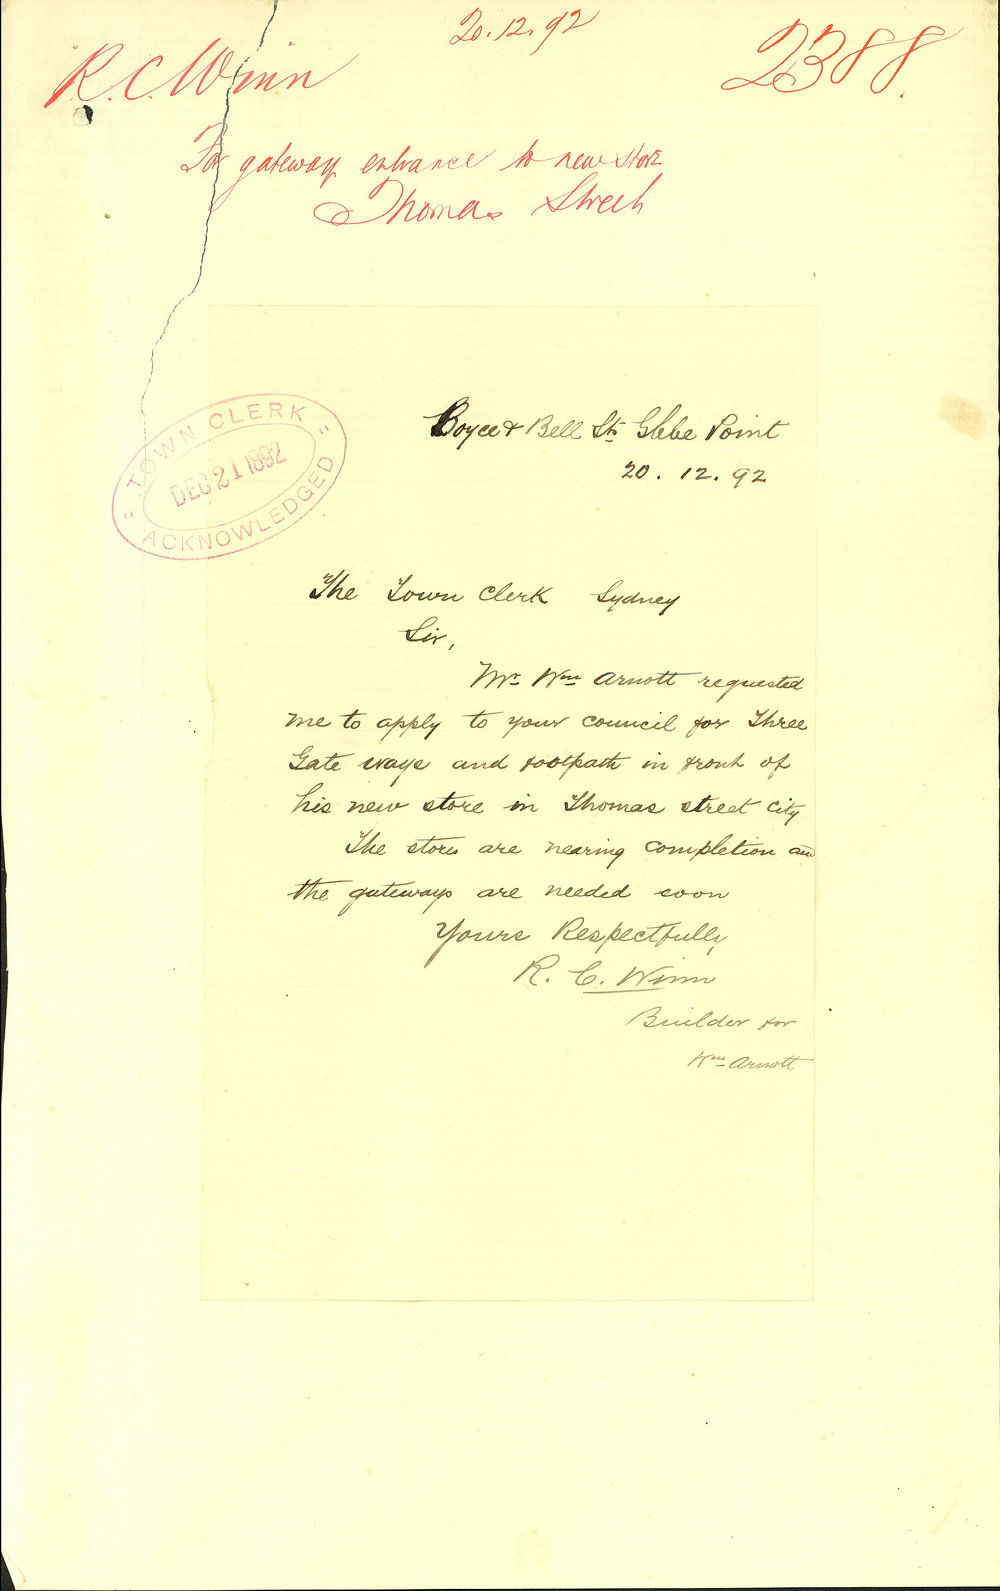 20.12.92
R. C. Winn
2388.
For gateway entrance to new store
Thomas Street
Boyce & Bell Sts Glebe Point
20. 12. 92
TOWN CLERK
DEC 21 1892
ACKNOWLEDGED
The Town Clerk Sydney
Sir,
Mr Wm Arnott requested
me to apply to your council for Three
Gate ways and footpath in front of
his new store in Thomas street City
The stores are nearing completion and
the gateways are needed soon
Yours Respectfully
R. C. Winn
Builder for
Wm Arnott